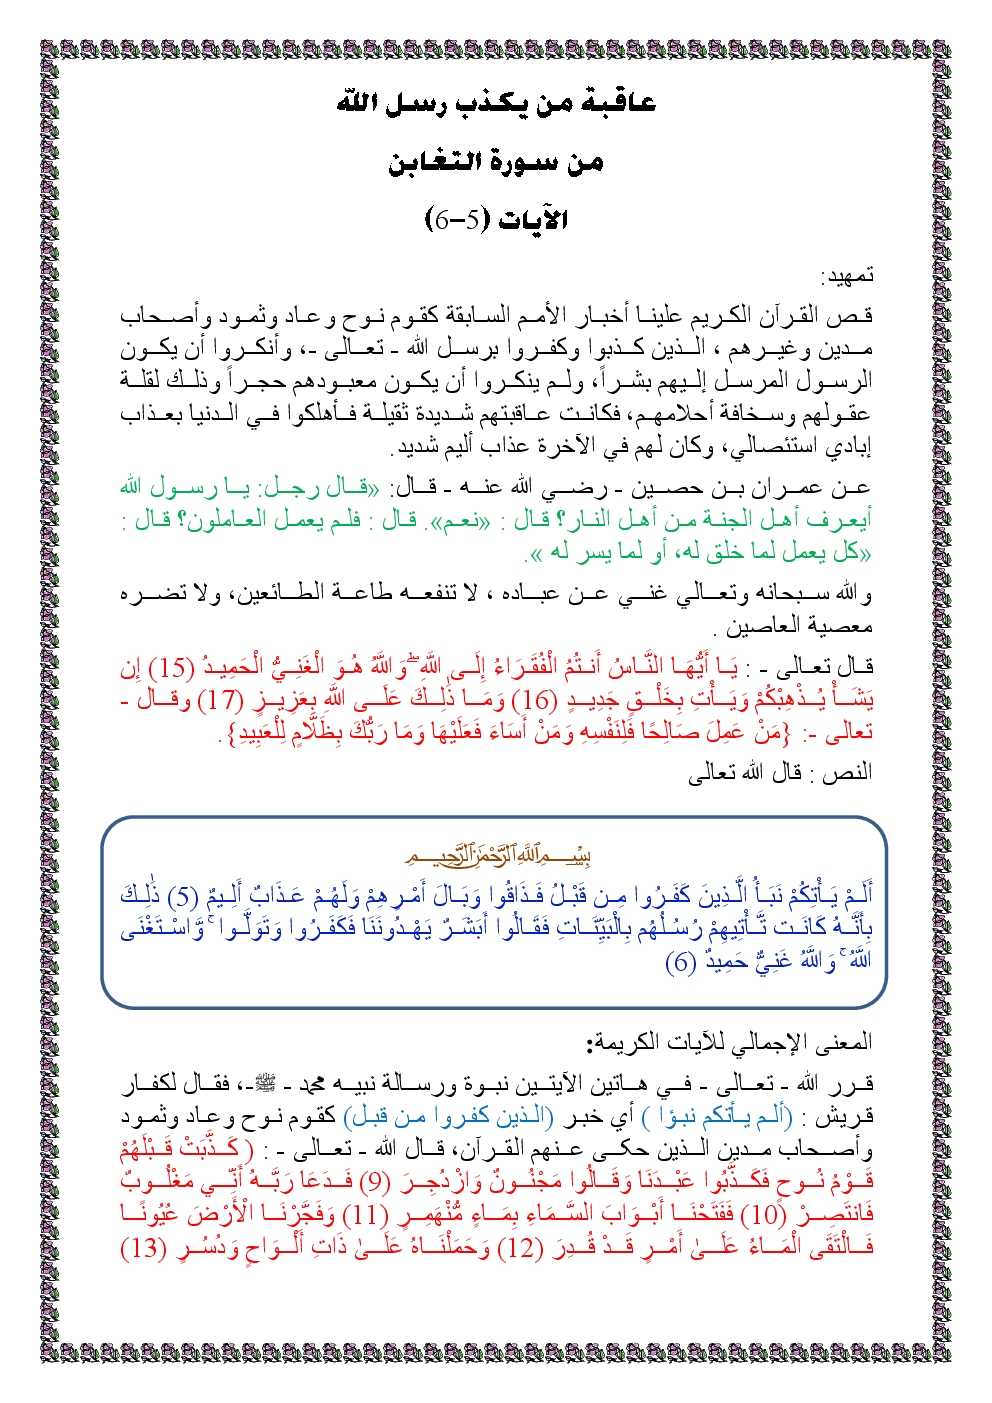 عاقبة من يكذب رسل الله
من سورة التغابن
الآيات (5–6)
تمهيد:
قص القرآن الكريم علينا أخبار الأمم السابقة كقوم نوح وعاد وثمود وأصحاب
مدين وغيرهم ، الذين كذبوا وكفروا برسل الله - تعالى -، وأنكروا أن يكون
الرسول المرسل إليهم بشراً، ولم ينكروا أن يكون معبودهم حجراً وذلك لقلة
عقولهم وسخافة أحلامهم، فكانت عاقبتهم شديدة ثقيلة فأهلكوا في الدنيا بعذاب
إبادي استئصالي، وكان لهم في الآخرة عذاب أليم شديد.
عن عمران بن حصين - رضي الله عنه - قال: «قال رجل: يا رسول الله
أيعرف أهل الجنة من أهل النار؟ قال : «نعم». قال : فلم يعمل العاملون؟ قال :
«كل يعمل لما خلق له، أو لما يسر له ».
والله سبحانه وتعالي غني عن عباده ، لا تنفعه طاعة الطائعين، ولا تضره
معصية العاصين .
قال تعالى - : يَا أَيُّهَا النَّاسُ أَنتُمُ الْفُقَرَاءُ إِلَى اللَّهِ ۖ وَاللَّهُ هُوَ الْغَنِيُّ الْحَمِيدُ (15) إِن
يَشَأْ يُذْهِبْكُمْ وَيَأْتِ بِخَلْقٍ جَدِيدٍ (16) وَمَا ذَٰلِكَ عَلَى اللَّهِ بِعَزِيزٍ (17) وقال -
تعالى -: {مَنْ عَمِلَ صَالِحًا فَلِنَفْسِهِ وَمَنْ أَسَاءَ فَعَلَيْهَا وَمَا رَبُّكَ بِظَلَّامٍ لِلْعَبِيدِ}.
النص : قال الله تعالى
بِسْمِ اللَّهِ الرَّحْمَٰنِ الرَّحِيمِ
أَلَمْ يَأْتِكُمْ نَبَأُ الَّذِينَ كَفَرُوا مِن قَبْلُ فَذَاقُوا وَبَالَ أَمْرِهِمْ وَلَهُمْ عَذَابٌ أَلِيمٌ (5) ذَٰلِكَ
بِأَنَّهُ كَانَت تَّأْتِيهِمْ رُسُلُهُم بِالْبَيِّنَاتِ فَقَالُوا أَبَشَرٌ يَهْدُونَنَا فَكَفَرُوا وَتَوَلَّوا ۚ وَّاسْتَغْنَى
اللَّهُ ۚ وَاللَّهُ غَنِيٌّ حَمِيدٌ (6)
المعنى الإجمالي للآيات الكريمة:
قرر الله - تعالى - في هاتين الآيتين نبوة ورسالة نبيه محمد - ﷺ -، فقال لكفار
قريش : (ألم يأتكم نبؤا ) أي خبر (الذين كفروا من قبل) كقوم نوح وعاد وثمود
وأصحاب مدين الذين حكى عنهم القرآن، قال الله - تعالى - : ( كَذَّبَتْ قَبْلَهُمْ
قَوْمُ نُوحٍ فَكَذَّبُوا عَبْدَنَا وَقَالُوا مَجْنُونٌ وَازْدُجِرَ (9) فَدَعَا رَبَّهُ أَنِّي مَغْلُوبٌ
فَانتَصِرْ (10) فَفَتَحْنَا أَبْوَابَ السَّمَاءِ بِمَاءٍ مُّنْهَمِرٍ (11) وَفَجَّرْنَا الْأَرْضَ عُيُونًا
فَالْتَقَى الْمَاءُ عَلَىٰ أَمْرٍ قَدْ قُدِرَ (12) وَحَمَلْنَاهُ عَلَىٰ ذَاتِ أَلْوَاحٍ وَدُسُرٍ (13)